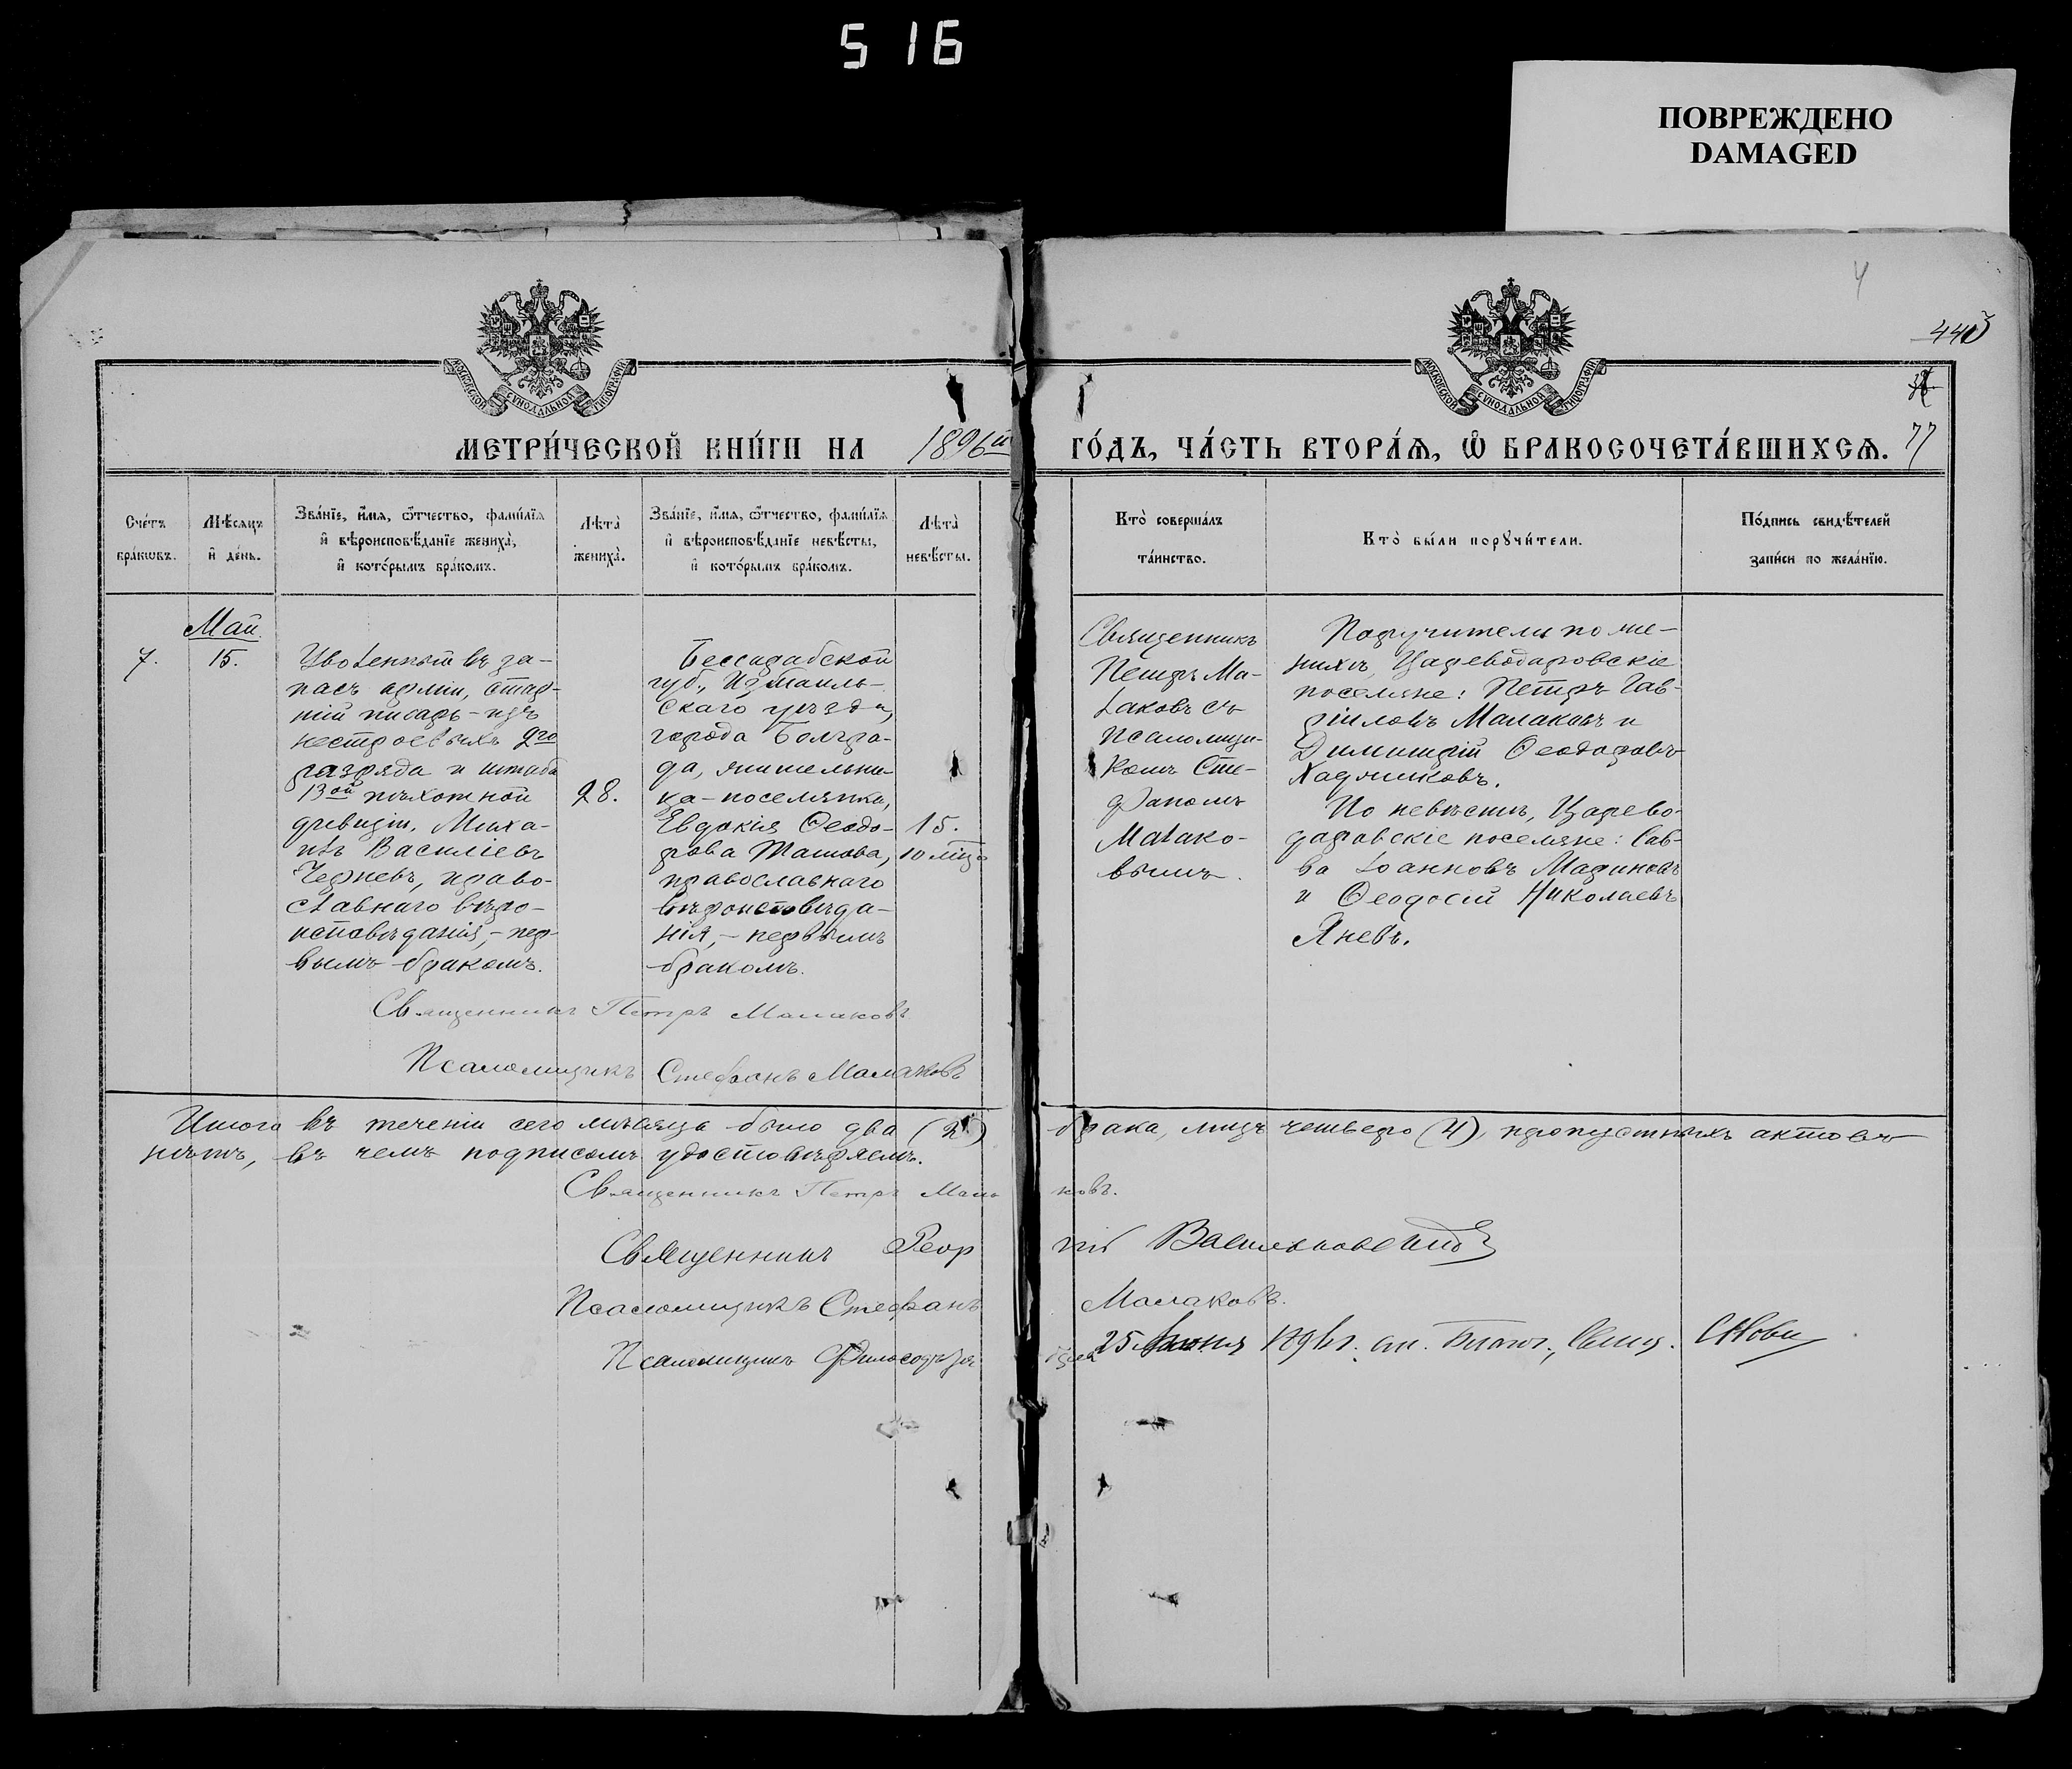 516
ПОВРЕЖДЕНО
DAMAGED
4
77
МОСКОВСКОЙ СУНОДАЛЬНОЙ ТИПОГРАФІИ
МОСКОВСКОЙ СУНОДАЛЬНОЙ ТИПОГРАФІИ
МЕТРИ́ЧЕСКОЙ КНИ́ГИ НА 1896й ГО́ДЪ, ЧА́СТЬ ВТОРА́Ѧ, Ѿ БРАКОСОЧЕТА́ВШИХСѦ.
Сче́тъ
бра́кѡвъ.
Мѣ́сяцъ
и҆ де́нь.
Зва́нїе, и҆́мѧ, ѻ҆́тчество, фами́лїѧ
и҆ вѣроисповѣ́данїе жениха̀,
и҆ кото́рымъ бра́комъ.
Лѣта̀
жениха̀.
Зва́нїе, и҆́мѧ, ѻ҆́тчество, фами́лїѧ
и҆ вѣроисповѣ́данїе невѣ́сты,
и҆ кото́рымъ бра́комъ.
Лѣта̀
невѣ́сты.
Кто̀ соверша́лъ
та́инство.
Кто̀ бы́ли порꙋчи́тели.
По́дпись свидѣ́телей
за́писи по жела́нїю.
7.
Май
15.
Уволенный въ за-
пасъ арміи, стар-
шій писарь - изъ
нестроевыхъ 2го
разряда и штаба
13ой пѣхотной
дивизіи, Миха-
илъ Василіевъ
Черневъ, право-
славнаго вѣро-
исповѣданія, - пер-
вымъ бракомъ.
28.
Бессарабской
губ., Измаиль-
скаго уѣзда,
города Болгра-
да, жительни-
ца - поселянка,
Евдокія Ѳеодо-
рова Ташова,
православнаго
вѣроисповѣда-
нія, - первымъ
бракомъ.
15.
10 мѣц.
Священникъ
Петръ Ма-
лаковъ съ
псаломщи-
комъ Сте-
фаномъ
Малако-
вымъ.
Поручители по же-
нихѣ, Цареводаровскіе
поселяне: Петръ Гав-
ріиловъ Малаковъ и
Димитрій Ѳеодоровъ
Хаджиковъ.
По невѣстѣ, Царево-
даровскіе поселяне: Сав-
ва Іоанновъ Мариновъ
и Ѳеодосій Николаевъ
Яневъ.
Священникъ Петръ Малаковъ
Псаломщикъ Стефанъ Малаковъ
Итого въ теченіи сего мѣсяца было два (2) брака, лицъ четверо (4), пропустныхъ актовъ
нѣтъ, въ чемъ подписомъ удостовѣряемъ.
Священникъ Петръ Малаковъ.
Священникъ Георгій Васильковскій
Псаломщикъ Стефанъ Малаковъ.
Псаломщикъ
25 Іюня 1896 г. Благоч., Свящ.